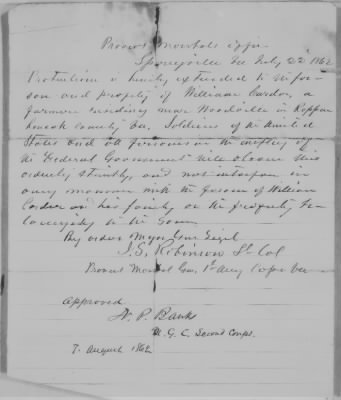 Provost Marshals Office
Sperryville Va July 22 1862
Protection is hereby extended to the per-
son and property of William Carder, a
farmer residing near Woodville in Rappa
hanock County Va. Soldiers of the United
States and all persons in the employ of
the Federal Government will observe this
order strictly, and not interfere in
any manner with the person of William
Carder or his family or the property
belonging to the same
By order Major Genl Sigel
J. S. Robinson Lt Col
Provost Marshal Genl 1st Army Corps Va
Approved
N. P. Banks
M. G. C. Second Corps.
7. August 1862